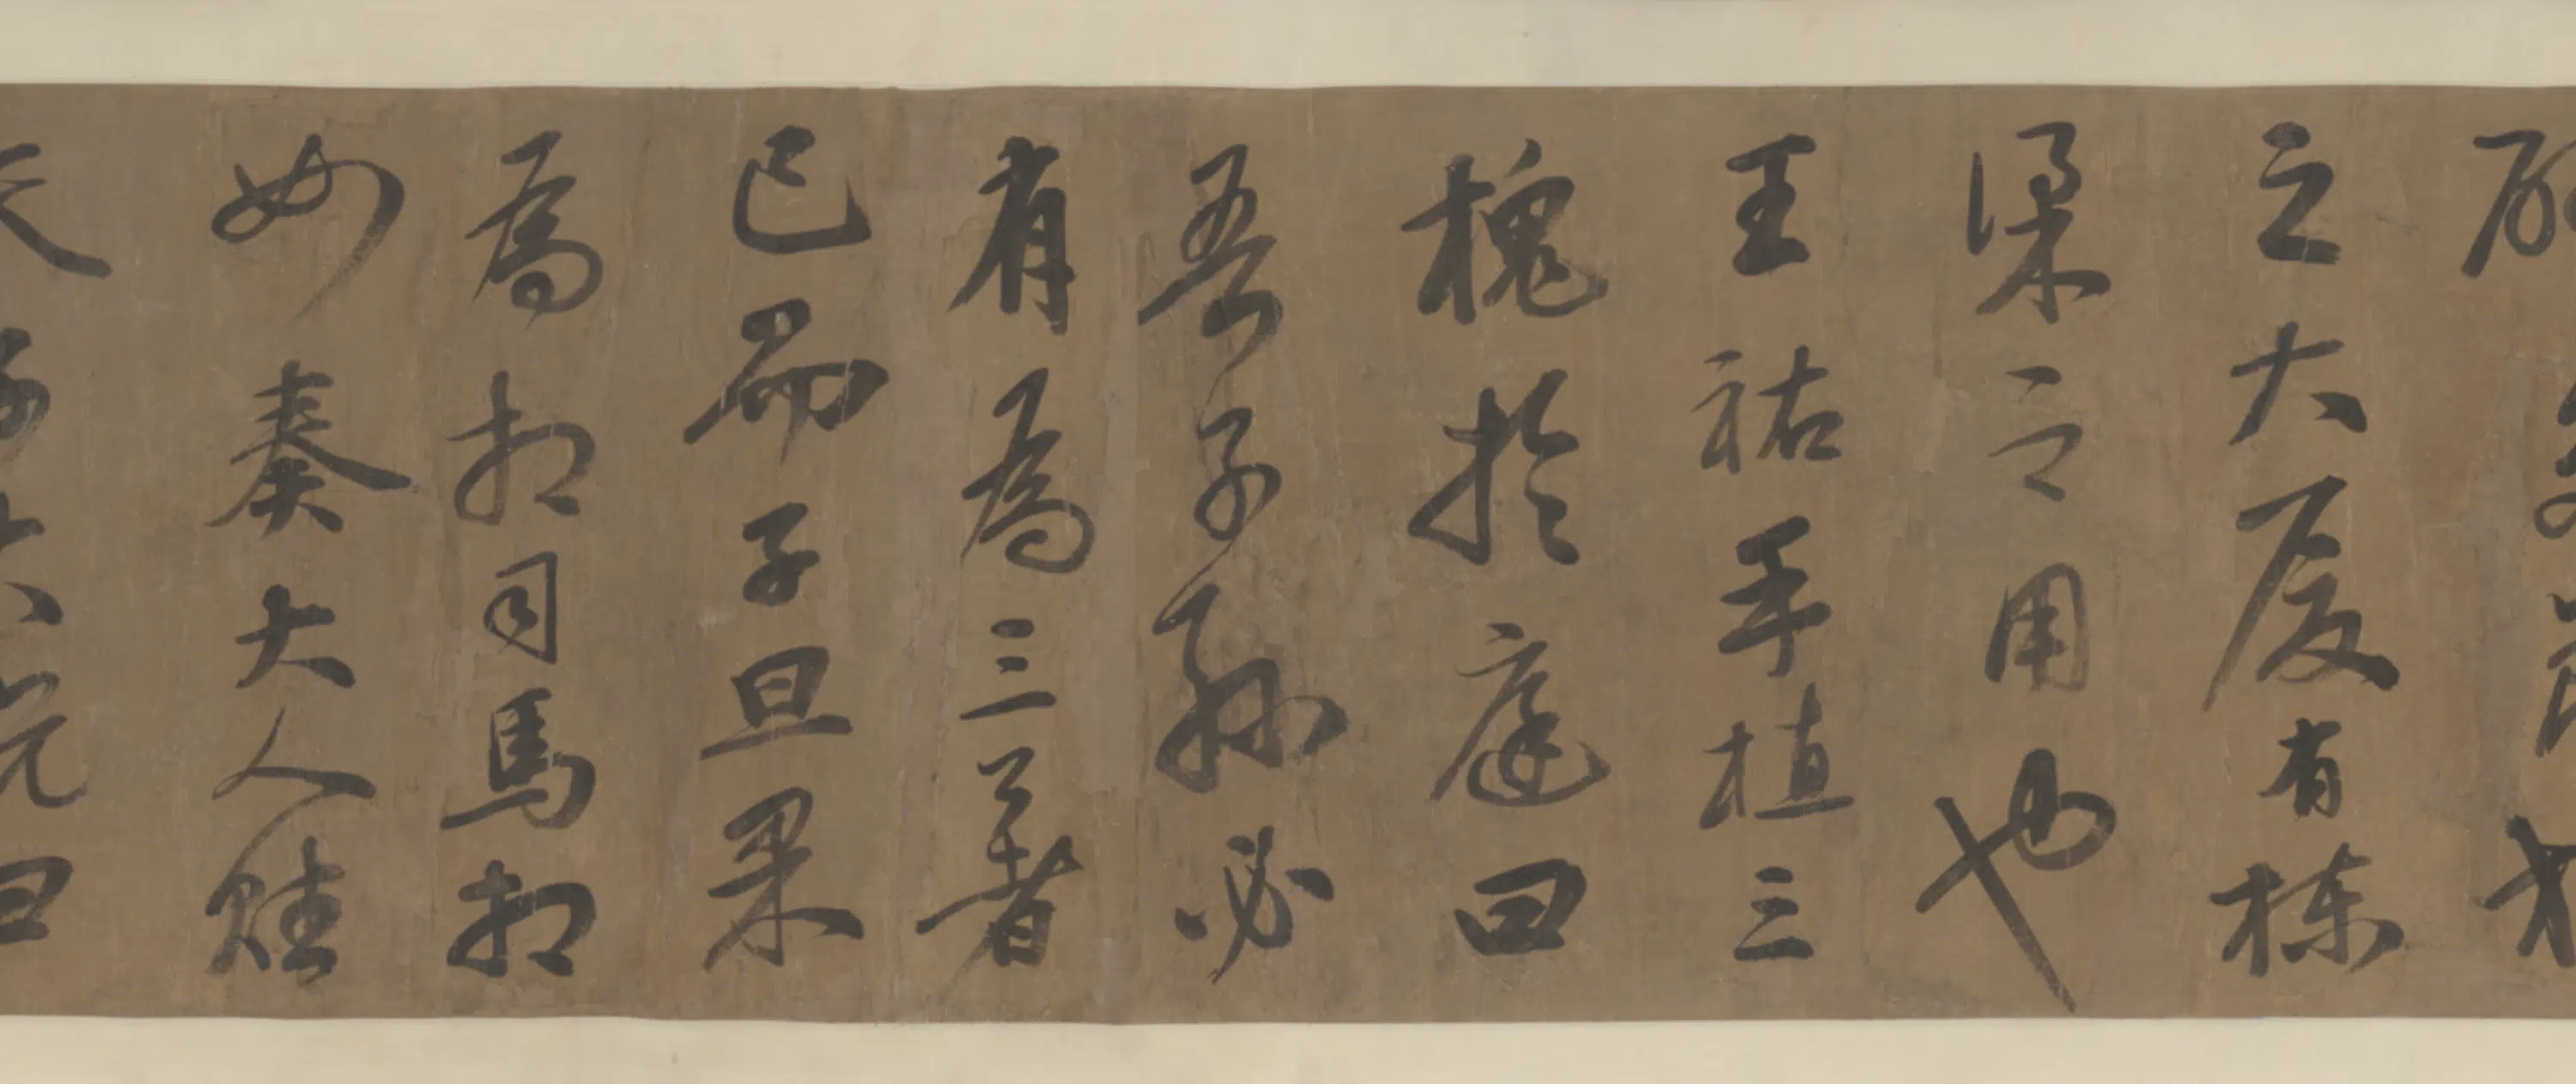 之大厦有棟
梁之用也
王祐手植三
槐於庭曰
吾子孫必
有為三公者
已而子旦果
為相司馬相
如奏大人賦